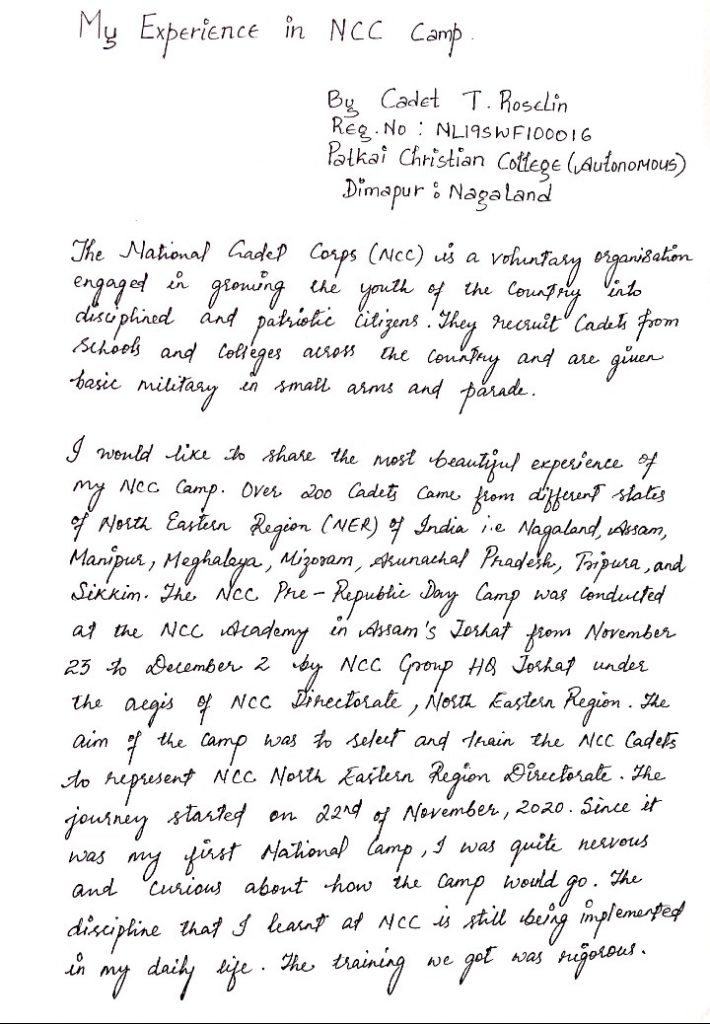 My Experience in NCC Camp.
By Cadet T. Roselin
Reg. No : NL19SWF100016
Patkai Christian College (Autonomous)
Dimapur : Nagaland
The National Cadet Corps (NCC) is a voluntary organisation
engaged in growing the youth of the country into
disciplined and patriotic Citizens. They recruit Cadets from
Schools and Colleges across the country and are given
basic military in small arms and parade.
I would like to share the most beautiful experience of
my NCC Camp. Over 200 Cadets Came from different states
of North Eastern Region (NER) of India i.e Nagaland, Assam,
Manipur, Meghalaya, Mizoram, Arunachal Pradesh, Tripura, and
Sikkim. The NCC Pre-Republic Day Camp was conducted
at the NCC Academy in Assam's Jorhat from November
23 to December 2 by NCC Group HQ Jorhat under
the aegis of NCC Directorate, North Eastern Region. The
aim of the Camp was to select and train the NCC Cadets
to represent NCC North Eastern Region Directorate. The
journey started on 22nd of November, 2020. Since it
was my first National Camp, I was quite nervous
and curious about how the camp would go. The
discipline that I learnt at NCC is still being implemented
in my daily life. The training we got was rigorous.